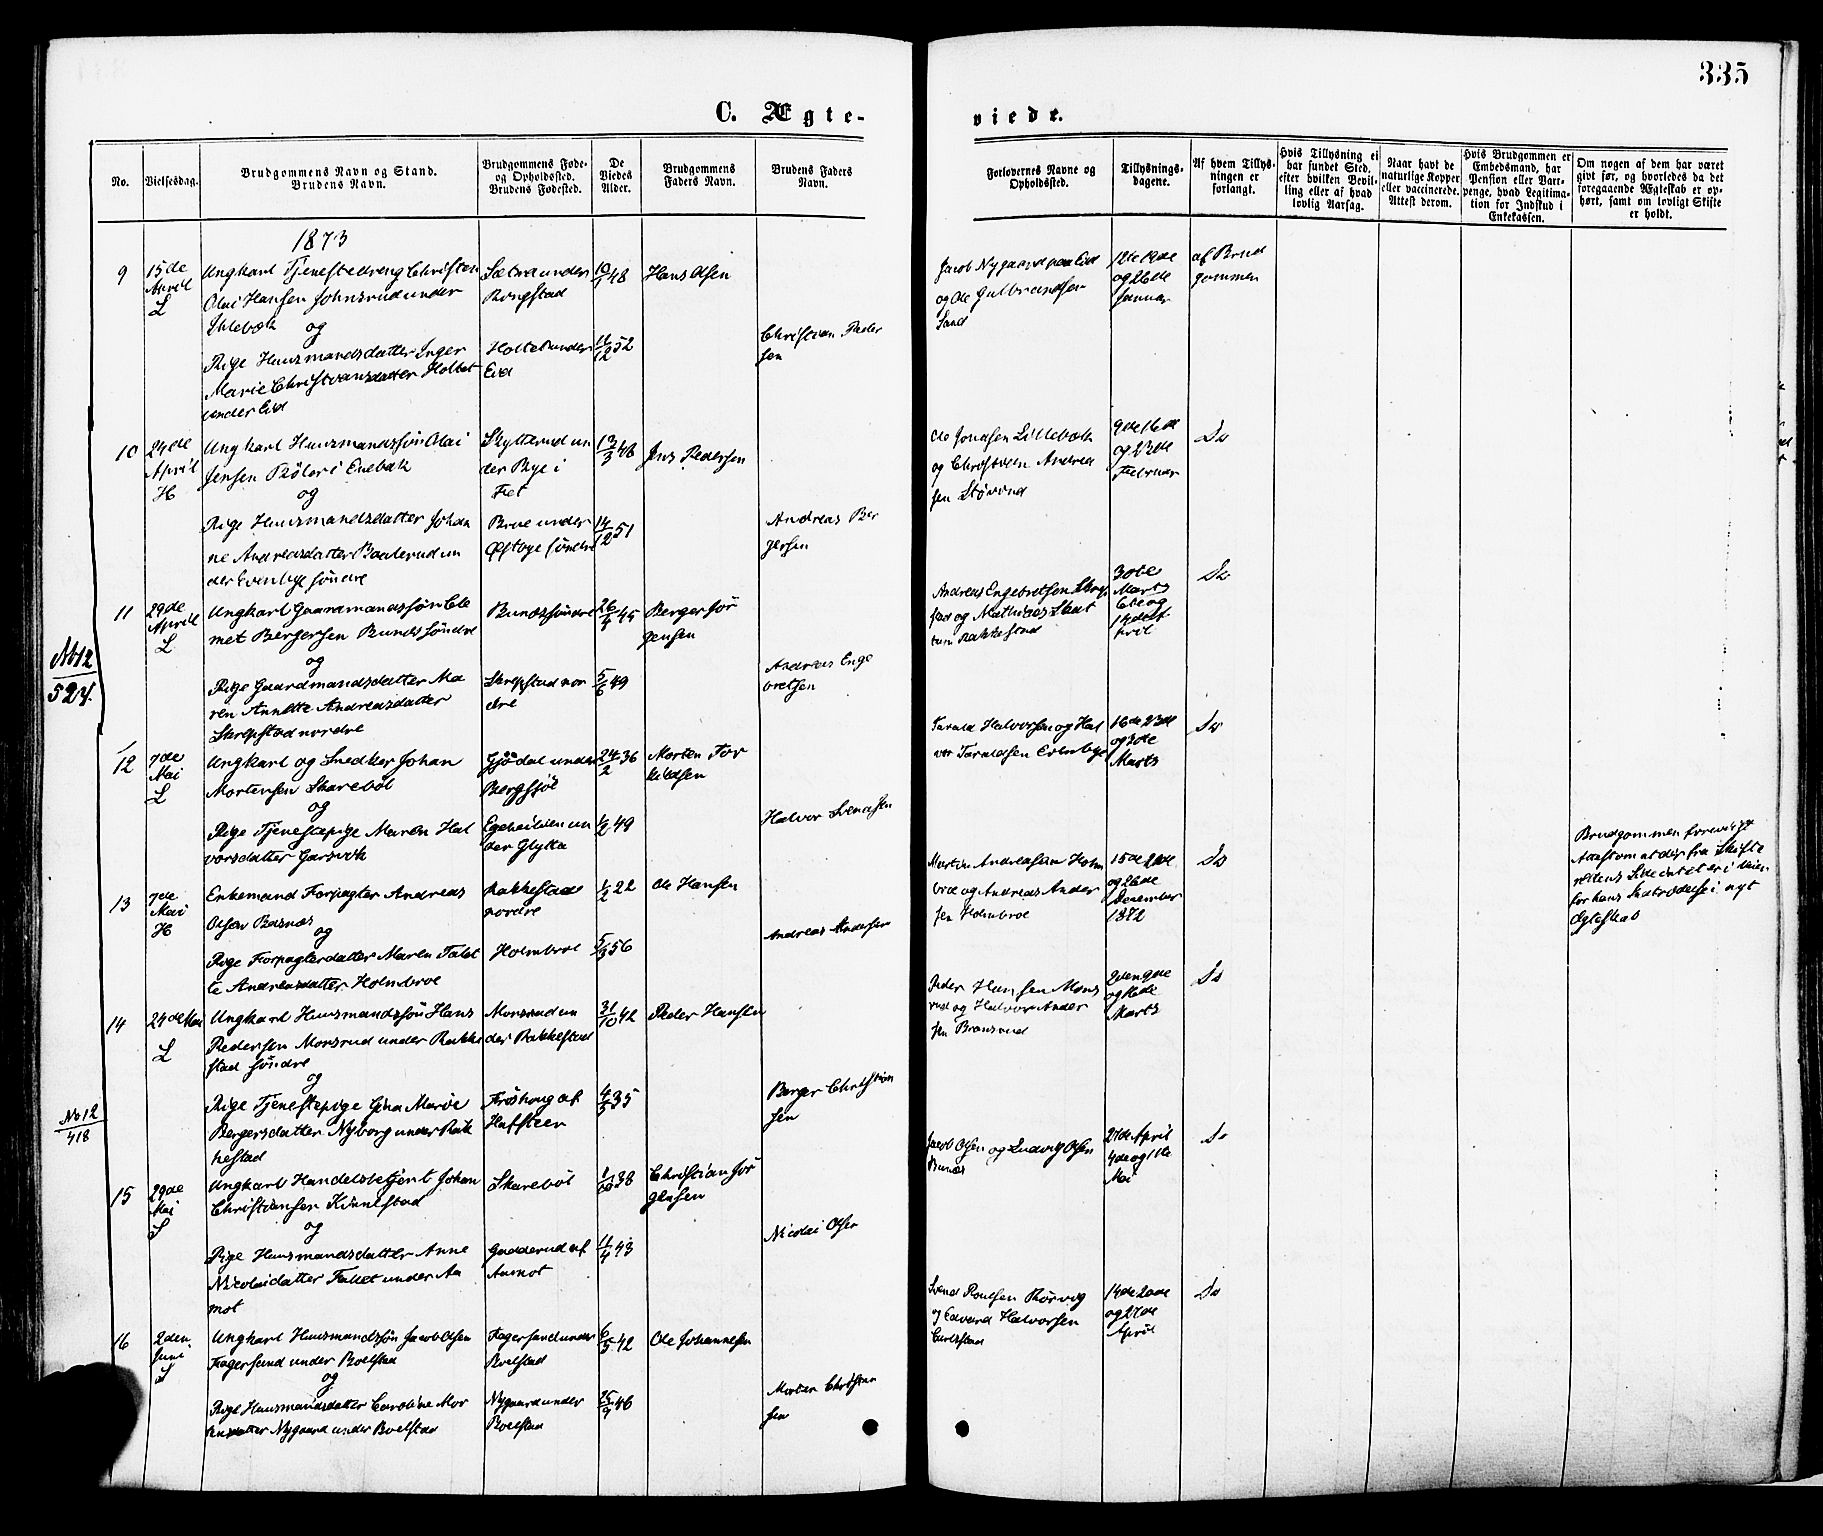 335
C. Ægte-
viede.
No.
Vielsesdag.
Brudgommens Navn og Stand.
Brudens Navn.
Brudgommens Føde-
og Opholdssted.
Brudens Fødested.
De
Viedes
Alder.
Brudgommens
Faders Navn.
Brudens Faders
Navn.
Forlovernes Navne og
Opholdssted.
Tillysnings-
dagene.
Af hvem Tillys-
ningen er
forlangt.
Hvis Tillysning ei
har fundet Sted,
efter hvilken Bevil-
ling eller af hvad
lovlig Aarsag.
Naar havt de
naturlige Kopper
eller vaccinerede.
Attest derom.
Hvis Brudgommen er
Embedsmand, har
Pension eller Vart-
penge, hvad Legitima-
tion for Indskud i
Enkekassen.
Om nogen af dem har været
givt før, og hvorledes da det
foregaaende Ægteskab er op-
hørt, samt om lovligt Skifte
er holdt.
1873
9
15de
April
L
Ungkarl Tjenestedreng Christen
Olai Hansen Johnsrud under
og
Pige Huusmandsdatter Inger
Marie Christiansdatter Holtet
under Eid
Sætra under
Rongstad
48
Hans Olsen
Holtet under
Eid
11/12 52
Christian Peder
sen
Jacob Nygaard paa Eid
og Ole Gulbrandsen
Sand
12te 19de
og 26de
Januar
af Brud
gommen
10
24de
April
H
Ungkarl Huusmandssøn Olai
Jensen Bøler i Enebak
og
Pige Huusmandsdatter Johan
ne Andreasdatter Baaterud un
der Evenbye søndre
Skytterud un
der Rye i
Fet
13/3 48
Jens Pedersen
Broe under
Østbye søndre
14/12 51
Andreas Ber
gersen
Ole Jonasen Lillebæk
og Christian Andrea
sen
9de 16de
og 23de
Februar
Do
11
29de
April
L
Ungkarl Gaardmandssøn Cle
met Bergersen Bunæs søndre
og
Pige Gaardmandsdatter Ma
ren Annette Andreasdatter
Skrepstad nordre
Bunæs søndre
45
Berger Jør
gensen
Skrepstad nor
dre
5/6 49
Andreas Enge
bretsen
Andreas Engebretsen Skrep
stad og Mathias
Rakkestad
30te
Marts
6te og
14de A
pril
Do
No 12
524.
12
7de
Mai
L
Ungkarl og Snedker Johan
Mortensen Skarebøl
og
Pige Tjenestepige Maren Hal
vorsdatter Garsvik
Gjødal under
Bergsjøl
24/2 36
Morten Tor
kildsen
under Glytta
1/2 49
Halvor Svendsen
Tarald Halvorsen og Hal
vor Taraldsen Evenbye
16de 23de
og 30te
Marts
Do
13
7de
Mai
H
Enkemand Forpagter Andreas
Olsen Basnæs
og
Pige Forpagterdatter Maren Talet
te Andreasdatter Holmbroe
Rakkestad
nordre
1/2 22
Ole Hansen
Holmbroe
5/3 56
Andreas Andersen
Martin Andreassen Holm
broe og Andreas Ander
sen Holmbroe
15de
og 26de
December
1872
Do
Brudgommen foreviist
Attest om at der fra Skifte
rettens Side intet er i Veien
for hans Indtrædelse i nyt
Ægteskab
14
24de Mai
L
Ungkarl Huusmandssøn Hans
Pedersen Monsrud under Rakke
stad søndre
og
Pige Tjenestepige Gina Marie
Bergersdatter Nyborg under Rak
kestad
Monsrud un
der Rakkestad
31/10 42
Peder Hansen
Frøshoug af
Hafsteen
4/5 35
Berger Christian
sen
Peder Hansen Mons
rud og Halvor Ander
sen
2den 9de
og 16de
Marts
Do
No 12
418
15
29de
Mai
S
Ungkarl Handelsbetjent Johan
Christiansen Kinnestad
og
Pige Huusmandsdatter Anne
Nicolaidatter Fallet under Aa
mot
Skarebøl
1/10 38
Christian Jør
gensen
Gadderud af
Aamot
11/4 43
Nicolai Olsen
Jacob Olsen og Ludvig Olsen
Bunæs
27de April
4de og 11te
Mai
Do
16
2den
Juni
S
Ungkarl Huusmandssøn Jacob Olsen
Fagersand under Boelstad
og
Pige Huusmandsdatter Caroline Mor
tensdatter Nygaard under Boelstad
Fagersand under
Boelstad
6/5 42
Ole Johannesen
Nygaard under
Boelstad
46
Morten Christen
sen
Svend Poulsen Rørvig
og Edvard Halvorsen
14de 20de
og 27de
April
Do